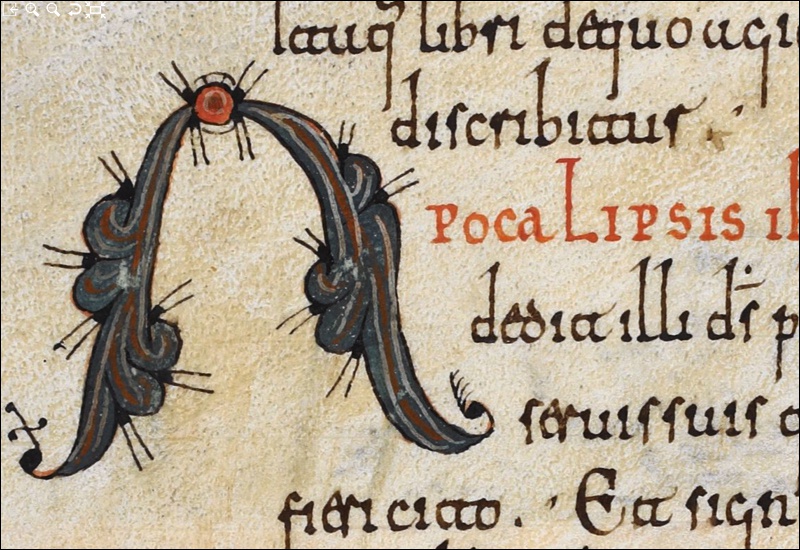 libri de quo agi
discribitur .
Apocalipsis
dedit illi d̄s p
seruis suis
fieri cito . Et sign